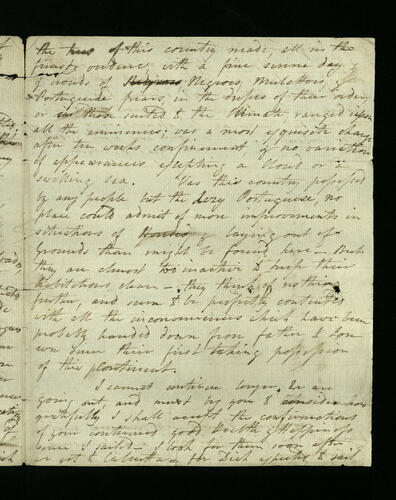 the trees of this country made, all in the
finest verdure with a fine sunny day &
crouds of Negroes Negroes, Mulattoes &
Portuguese friars, in the dresses of their orders,
or those suited to the Climate, ranged upon
all the eminences; was a most exquisite change
after ten weeks confinement & no variation
of appearances excepting a Cloud or a
swelling sea. Was this country possessed
by any people but the lazy Portuguese, no
place could admit of more improvements in
situations of laying out of
Grounds than might be found here - But
they are almost too inactive to keep their
habitations clean - they think of nothing
further, and seem to be perfectly contented
with all the inconveniences which have been
probably handed down from father to Son
ever since their first taking possession
of this Continent.
I cannot continue longer, we are
going out, and must beg you to consider how
gratefully I shall accept the confirmations
of your continued good Health & Happiness
since I sailed - I look for them soon after
we get to Calcutta for Dick expects to sail